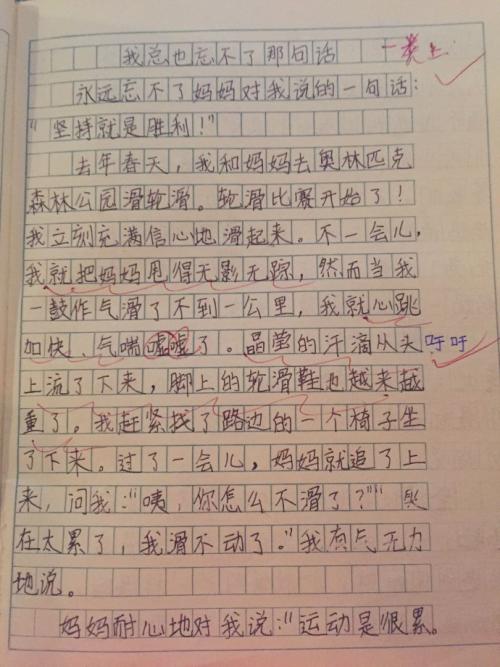 我总也忘不了那句话 一类上
永远忘不了妈妈对我说的一句话：
“坚持就是胜利！”
去年春天，我和妈妈去奥林匹克
森林公园滑轮滑。轮滑比赛开始了！
我立刻充满信心地滑起来。不一会儿，
我就把妈妈甩得无影无踪，然而当我
一鼓作气滑了不到一公里，我就心跳
加快、气喘嘘嘘了。晶莹的汗滴从头 吁吁
上流了下来，脚上的轮滑鞋也越来越
重了。我赶紧找了路边的一个椅子坐
了下来。过了一会儿，妈妈就追了上
来，问我：“咦，你怎么不滑了？”“实
在太累了，我滑不动了。”我有气无力
地说。
妈妈耐心地对我说：“运动是很累。